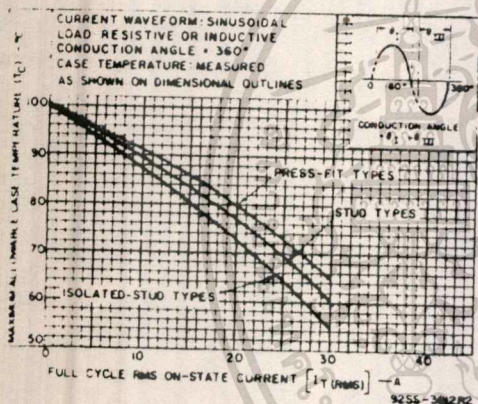 CURRENT WAVEFORM: SINUSOIDAL
LOAD RESISTIVE OR INDUCTIVE
CONDUCTION ANGLE = 360°
CASE TEMPERATURE: MEASURED
AS SHOWN ON DIMENSIONAL OUTLINES
0 180° 360°
CONDUCTION ANGLE
= θI + θIII
MAXIMUM ALLOWABLE CASE TEMPERATURE (TC) - °C
100
90
80
70
60
50
PRESS-FIT TYPES
STUD TYPES
ISOLATED-STUD TYPES
0 10 20 30 40
FULL CYCLE RMS ON-STATE CURRENT [IT(RMS)] — A